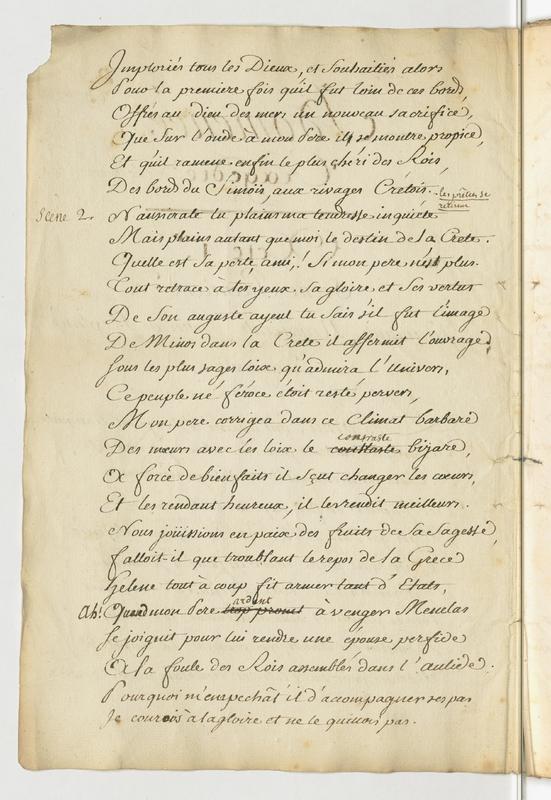 Imploriés tous les Dieux, et souhaitiés alors
Pour la premiere fois qu'il fut loin de ces bords,
Offrés au dieu des mers un nouveau sacrifice,
Que sur l'onde a mon Pere il se montre propice,
Et qu'il ramene enfin le plus chéri des Rois,
Des bords du Simoïs, aux rivages Crétois. les prêtres se retirent
Scene 2. Nausicrate tu plains ma tendresse inquiéte
Mais plains autant que moi, le destin de la Crete.
Quelle est sa perte, ami,! Si mon pere n'est plus.
Tout retrace à tes yeux sa gloire et ses vertus
De son auguste ayeul tu sais s'il fut l'image
De Minos dans la Crete il affermit l'ouvrage
sous les plus sages loix qu'admira l'Univers,
Ce peuple né féroce étoit resté pervers,
Mon pere corrigea dans ce Climat barbare
Des mœurs avec ces loix le constraste bizare,
A force de bienfaits il sçut changer les cœurs,
Et les rendant heureux, il les rendit meilleurs.
Nous joüissions en paix des fruits de sa sagesse,
falloit-il que troublant le repos de la Grece
helene tout à coup fit armer tant d'Etats,
ah! Quand mon Pere ardent trop promt à venger Menelas
se joignit pour lui rendre une épouse perfide
A la foule des Rois assemblés dans l'aulide.
Pourquoi m'enpechât il d'acompagner ses pas
Je courois à la gloire et ne le quittois pas.